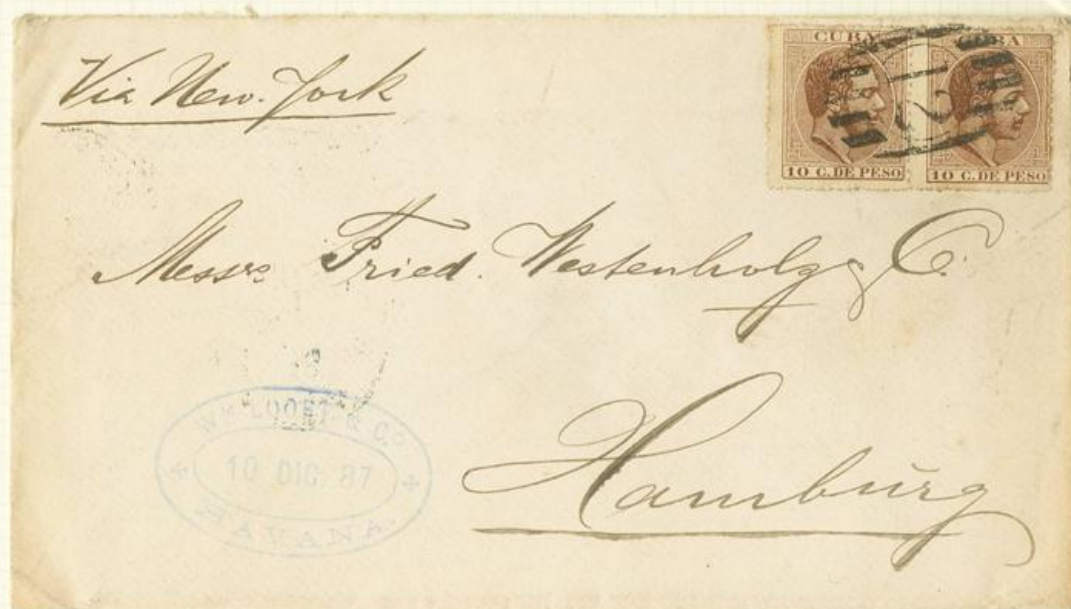 Via New-York
CUBA CUBA
10 C. DE PESO 10 C. DE PESO
Messrs Fried. Westenholz & C.
Hamburg
& Co
10 DIC. 87
HAVANA.